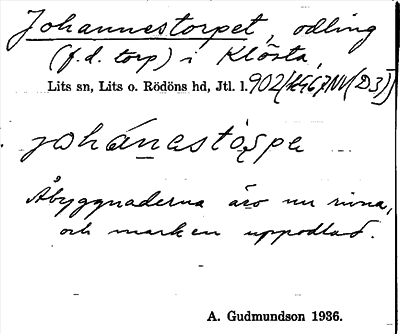 Johannestorpet, odling
(f.d. torp) i Klösta,
Lits sn, Lits o. Rödöns hd, Jtl. l. 902
johánastòrpe
Åbyggnaderna äro nu rivna,
och marken uppodlad.
A. Gudmundson 1936.